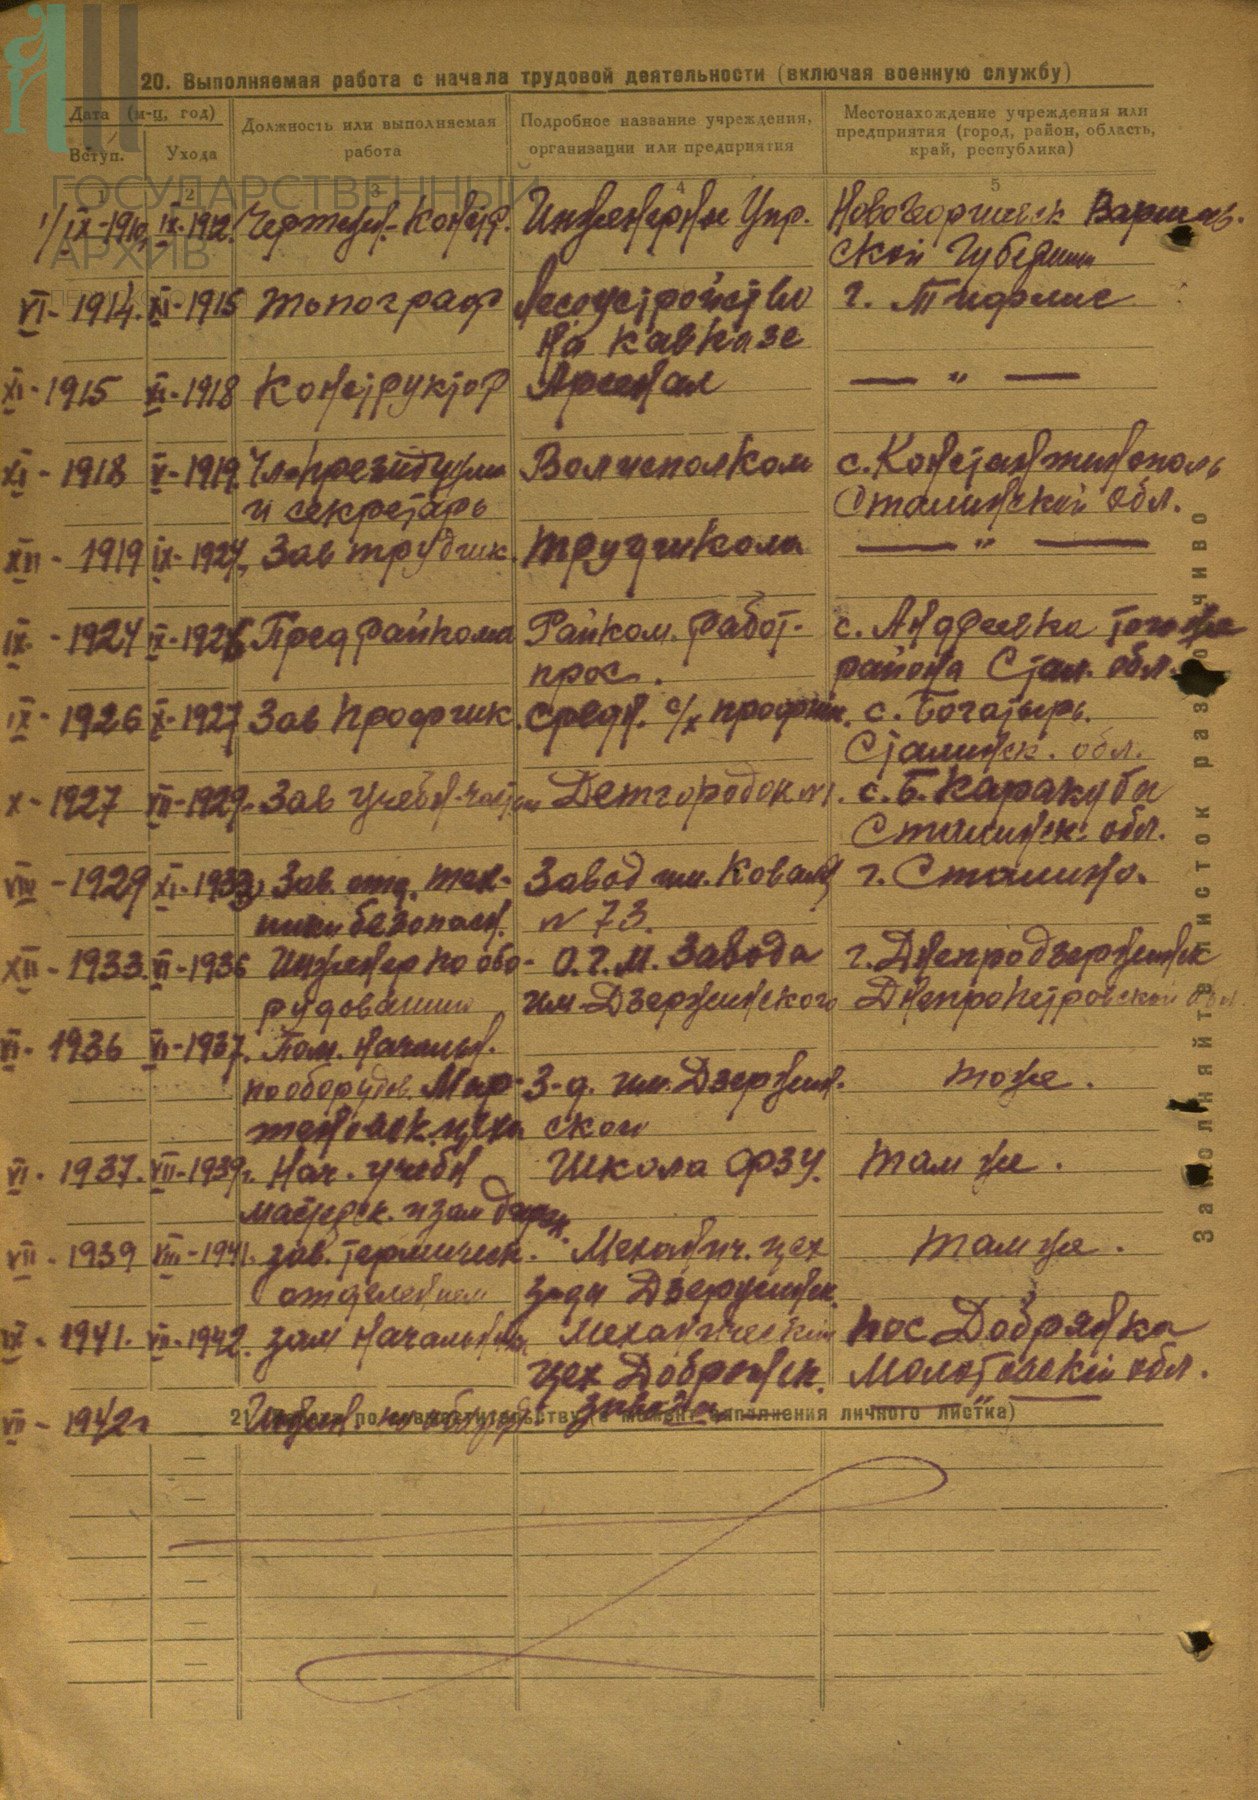 ГОСУДАРСТВЕННЫЙ
АРХИВ
20. Выполняемая работа с начала трудовой деятельности (включая военную службу)
Дата (м-ц, год)
Вступ.
Ухода
Должность или выполняемая
работа
Подробное название учреждения,
организации или предприятия
Местонахождение учреждения или
предприятия (город, район, область,
край, республика)
1 2 3 4 5
1/IX-1910 IX-1912. Чертежн.-Констр. Инженерн Упр. Новогеоргиевск Варшав-
ской Губернии
VI-1914. XI-1915 топограф Лесоустройство г. Тифлис
на кавказе
XI-1915 XI-1918 Конструктор Арсенал — " —
XI-1918 V-1919 Чл. президиума Волисполком с. Константинополь
и секретарь Сталинской обл.
XII-1919 IX-1924 Зав трудшк. трудшкола — " —
IX-1924 IX-1926 Предрайкома Райком. работ- с. Андреевка того же
прос. района Стал. обл.
IX-1926 X-1927 Зав Профшк. средн. с/х профшк. с. Богатырь.
Сталинск. обл.
X-1927 VII-1929. Зав учебн-частью Детгородок №1. с. Б. Каракуба
Сталинск. обл.
VIII-1929 XI-1933 Зав. отд. тех- Завод им. Коваля г. Сталино.
ники безопасн. № 73.
XII-1933. VI-1936 Инженер по обо- О.Г.М. Завода г. Днепродзержинск
рудованию им-Дзержинского Днепропетровской обл.
VI-1936 VI-1937. Пом. начальн.
по оборудов. Мар- З-д. им. Дзержин- тоже.
теновск. цеха ского
VI-1937. VII-1939г. Нач. учебн Школа ФЗУ. там же.
мастерск. и зам
VII-1939 VIII-1941. зав. термическ. Механич. цех там же.
отделением з-да Дзержинск.
IX-1941. VII-1942. зам начальника Механический пос Добрянка
цех Добрянск. Молотовской обл.
VII-1942г Инжен по оборуд завода — " —
21. по совместительству (в момент заполнения личного листка)
Заполняйте листок разборчиво